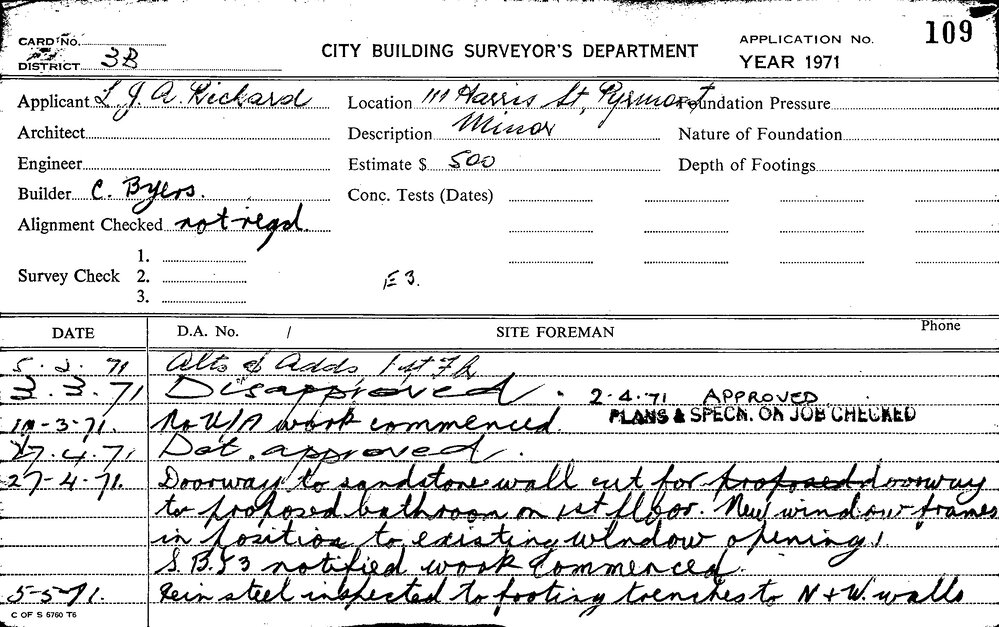 CARD No.
DISTRICT 3B
CITY BUILDING SURVEYOR'S DEPARTMENT
APPLICATION No. 109
YEAR 1971
Applicant L. J. A. Rickard
Location 111 Harris St, Pyrmont
Foundation Pressure
Architect
Description Minor
Nature of Foundation
Engineer
Estimate $ 500
Depth of Footings
Builder C. Byers.
Conc. Tests (Dates)
Alignment Checked not reqd.
1.
Survey Check 2.
3.
E 3.
DATE D.A. No. / SITE FOREMAN Phone
71 Alts & Adds 1st Flr
3.3.71 Disapproved. 2-4-71 APPROVED
-3-71. No U/A work commenced PLANS & SPECN. ON JOB CHECKED
.4.71 Det. approved.
27-4-71. Doorway to sandstone wall cut for proposed doorway
to proposed bathroom on 1st floor. New window frames
in position to existing window opening!
S.B.S3 notified work commenced.
5-5-71. Rein steel inspected to footing trenches to N + W. walls
C OF S 5760 T6